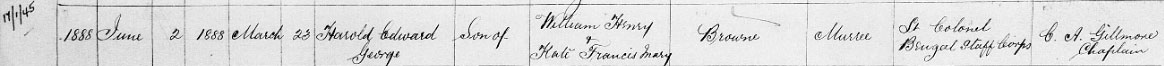 17/1/45
1888 June 2 1888 March 23 Harold Edward George Son of William Henry & Kate Francis Mary Browne Murree Lt Colonel Bengal Staff Corps C. A. Gillmore Chaplain